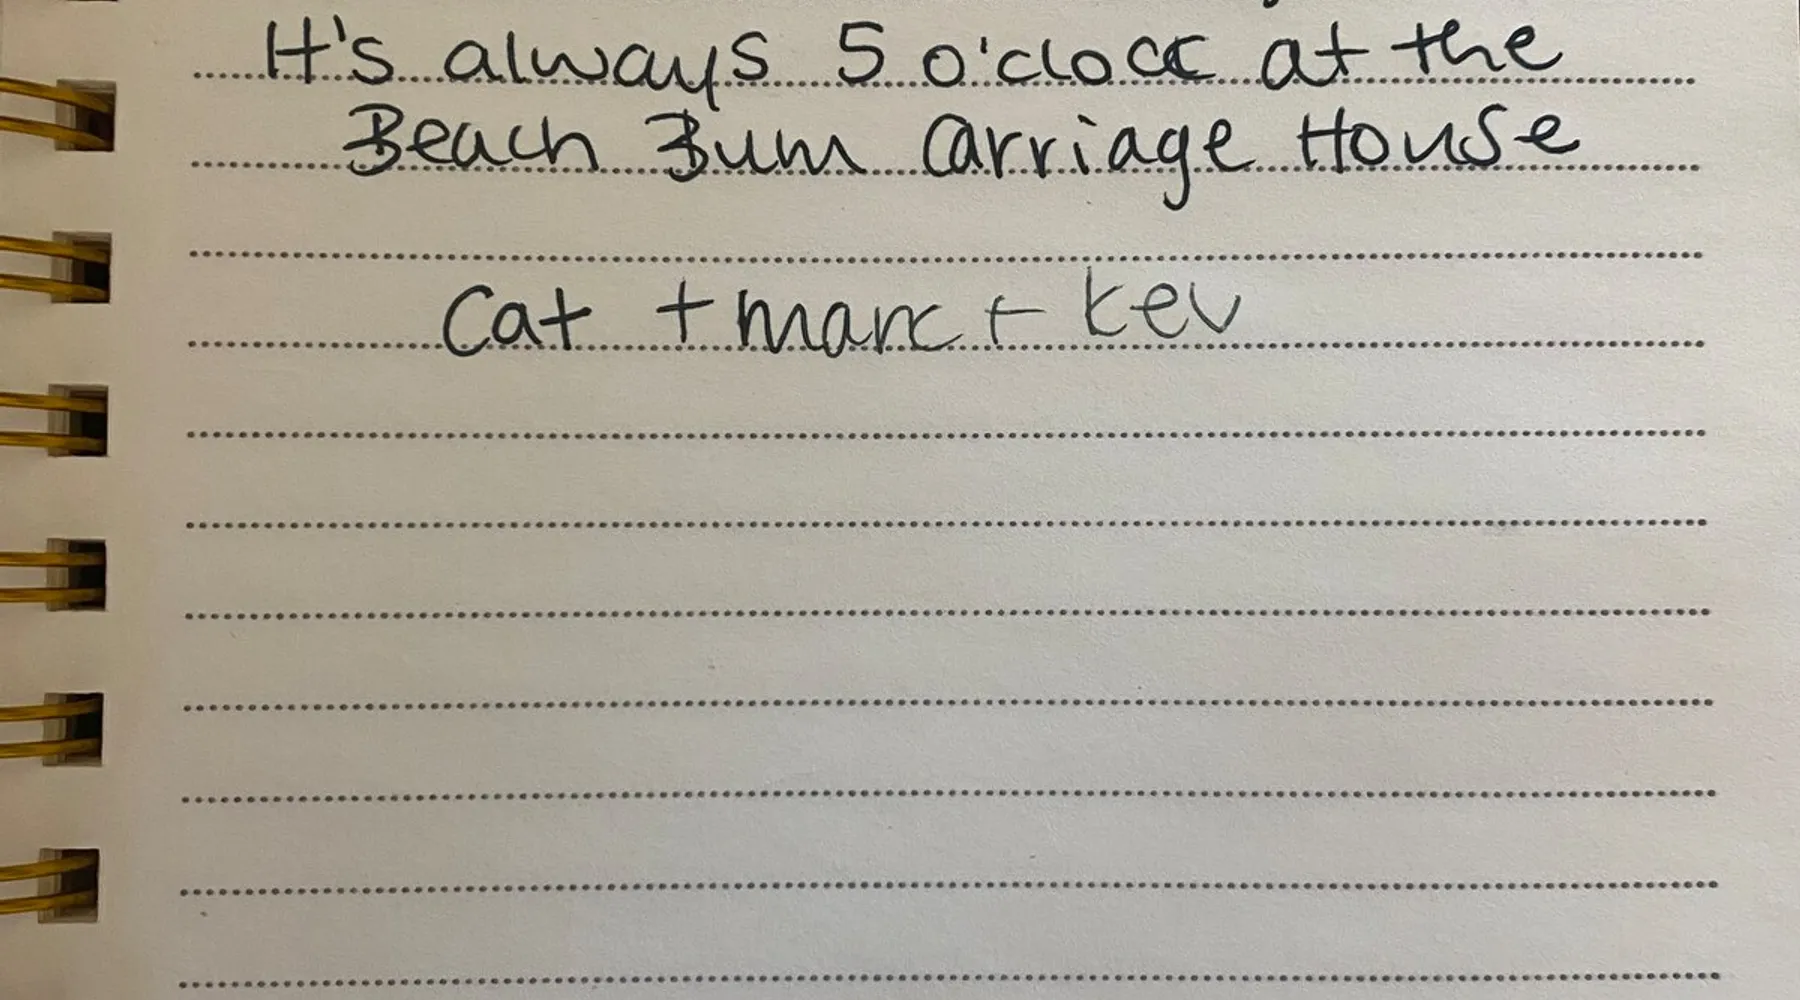 It's always 5 o'clock at the
Beach Bum Carriage House
Cat + Marc + Kev